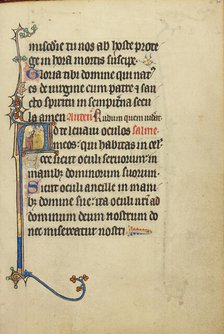 misedie tu nos ab hoste prote
ge in hora mortis suscipe.
Gloria tibi domine qui nat'
es de uirgine cum patre et san
cto spiritu in sempiterna secu
la amen. Rubum quem
Ad te leuaui oculos
meos: qui habitas in cel
Ecce sicut oculi seruorum: in ma
nibz dominorum suorum.
Sicut oculi ancille in mani
bz domine sue: ita oculi nri ad
dominum deum nostrum do
nec misereatur nostri.